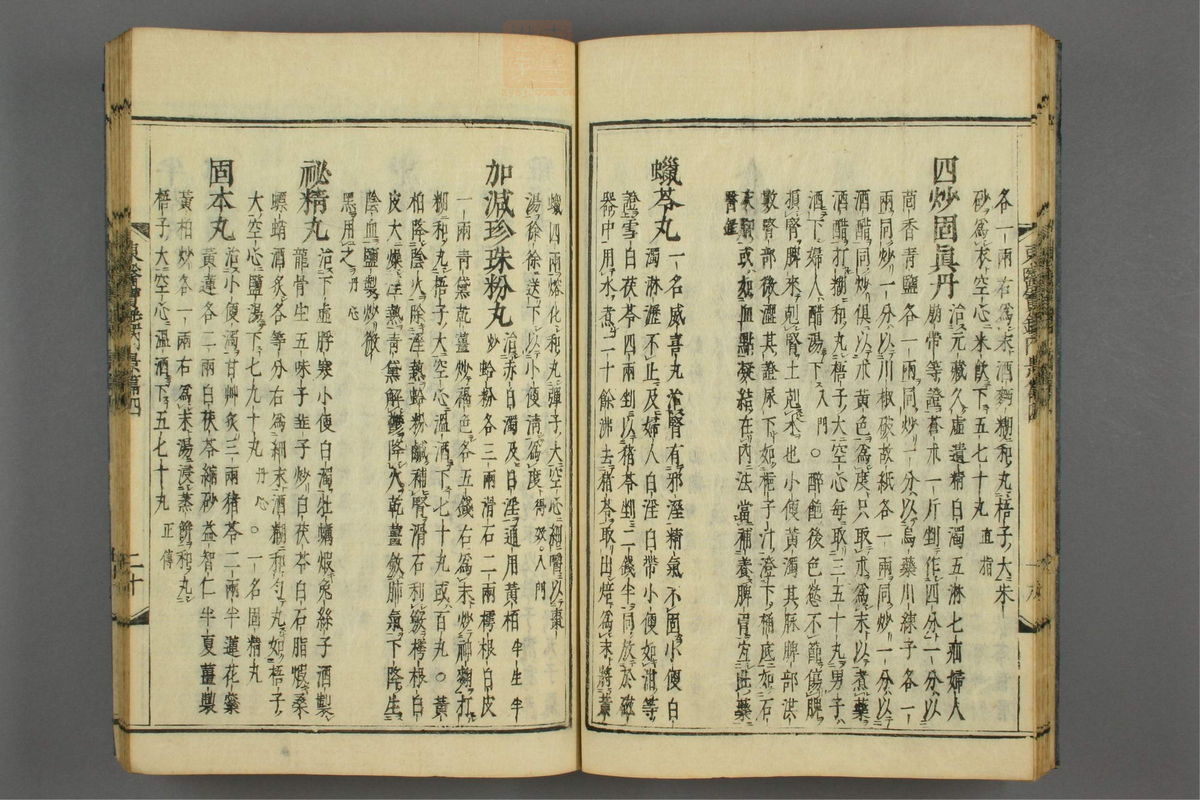 各一兩右爲末酒麪糊和丸梧子大朱
砂爲衣空心米飮下五七十丸直指
四炒固眞丹 治元藏久虛遺精白濁五淋七疝婦人
崩帶等證蒼朮一斤剉作四分一分以
茴香靑鹽各一兩同炒一分以烏藥川練子各一
兩同炒一分以川椒破故紙各一兩同炒一分以
酒醋同炒俱以朮黃色爲度只取朮爲末以煮藥
酒醋打糊和丸梧子大空心每取三五十丸男子
酒下婦人醋湯下入門○醉飽後色慾不節傷脾
損腎脾來剋腎土剋水也小便黃濁其脉脾部洪
數腎部微澀其證尿下如梔子汁澄下桶底如石
末顆或如血點凝結在內法當補養脾胃宜此藥
醫鑑
蠟苓丸 一名威喜丸治腎有邪溼精氣不固小便白
濁淋瀝不止及婦人白淫白帶小便如泔等
證雪白茯苓四兩剉以猪苓剉二錢半同放於磁
器中用水煮二十餘沸去猪苓取出焙爲末將黃
蠟四兩熔化和丸彈子大空心細嚼以棗
湯徐徐送下以小便淸爲度得效○入門
加減珍珠粉丸 治赤白濁及白淫通用黃柏半生半
炒蛤粉各三兩滑石二兩樗根白皮
一兩靑黛乾薑炒褐色各五錢右爲末炒神麴打
糊和丸梧子大空心溫酒下七十丸或百丸○黃
柏降陰火除溼熱蛤粉鹹補腎滑石利竅樗根白
皮大燥溼熱靑黛解鬱降火乾薑斂肺氣下降生
陰血鹽製炒微
黑用之丹心
祕精丸 治下虛脬寒小便白濁牡蠣煆兔絲子酒製
龍骨生五味子韭子炒白茯苓白石脂煆桑
螵蛸酒炙各等分右爲細末酒糊和勻丸如梧子
大空心鹽湯下七九十丸丹心○一名固精丸
固本丸 治小便濁甘艸炙三兩猪苓二兩半蓮花蘂
黃連各二兩白茯苓縮砂益智仁半夏薑製
黃柏炒各一兩右爲末湯浸蒸餠和丸
梧子大空心溫酒下五七十丸正傳
二十